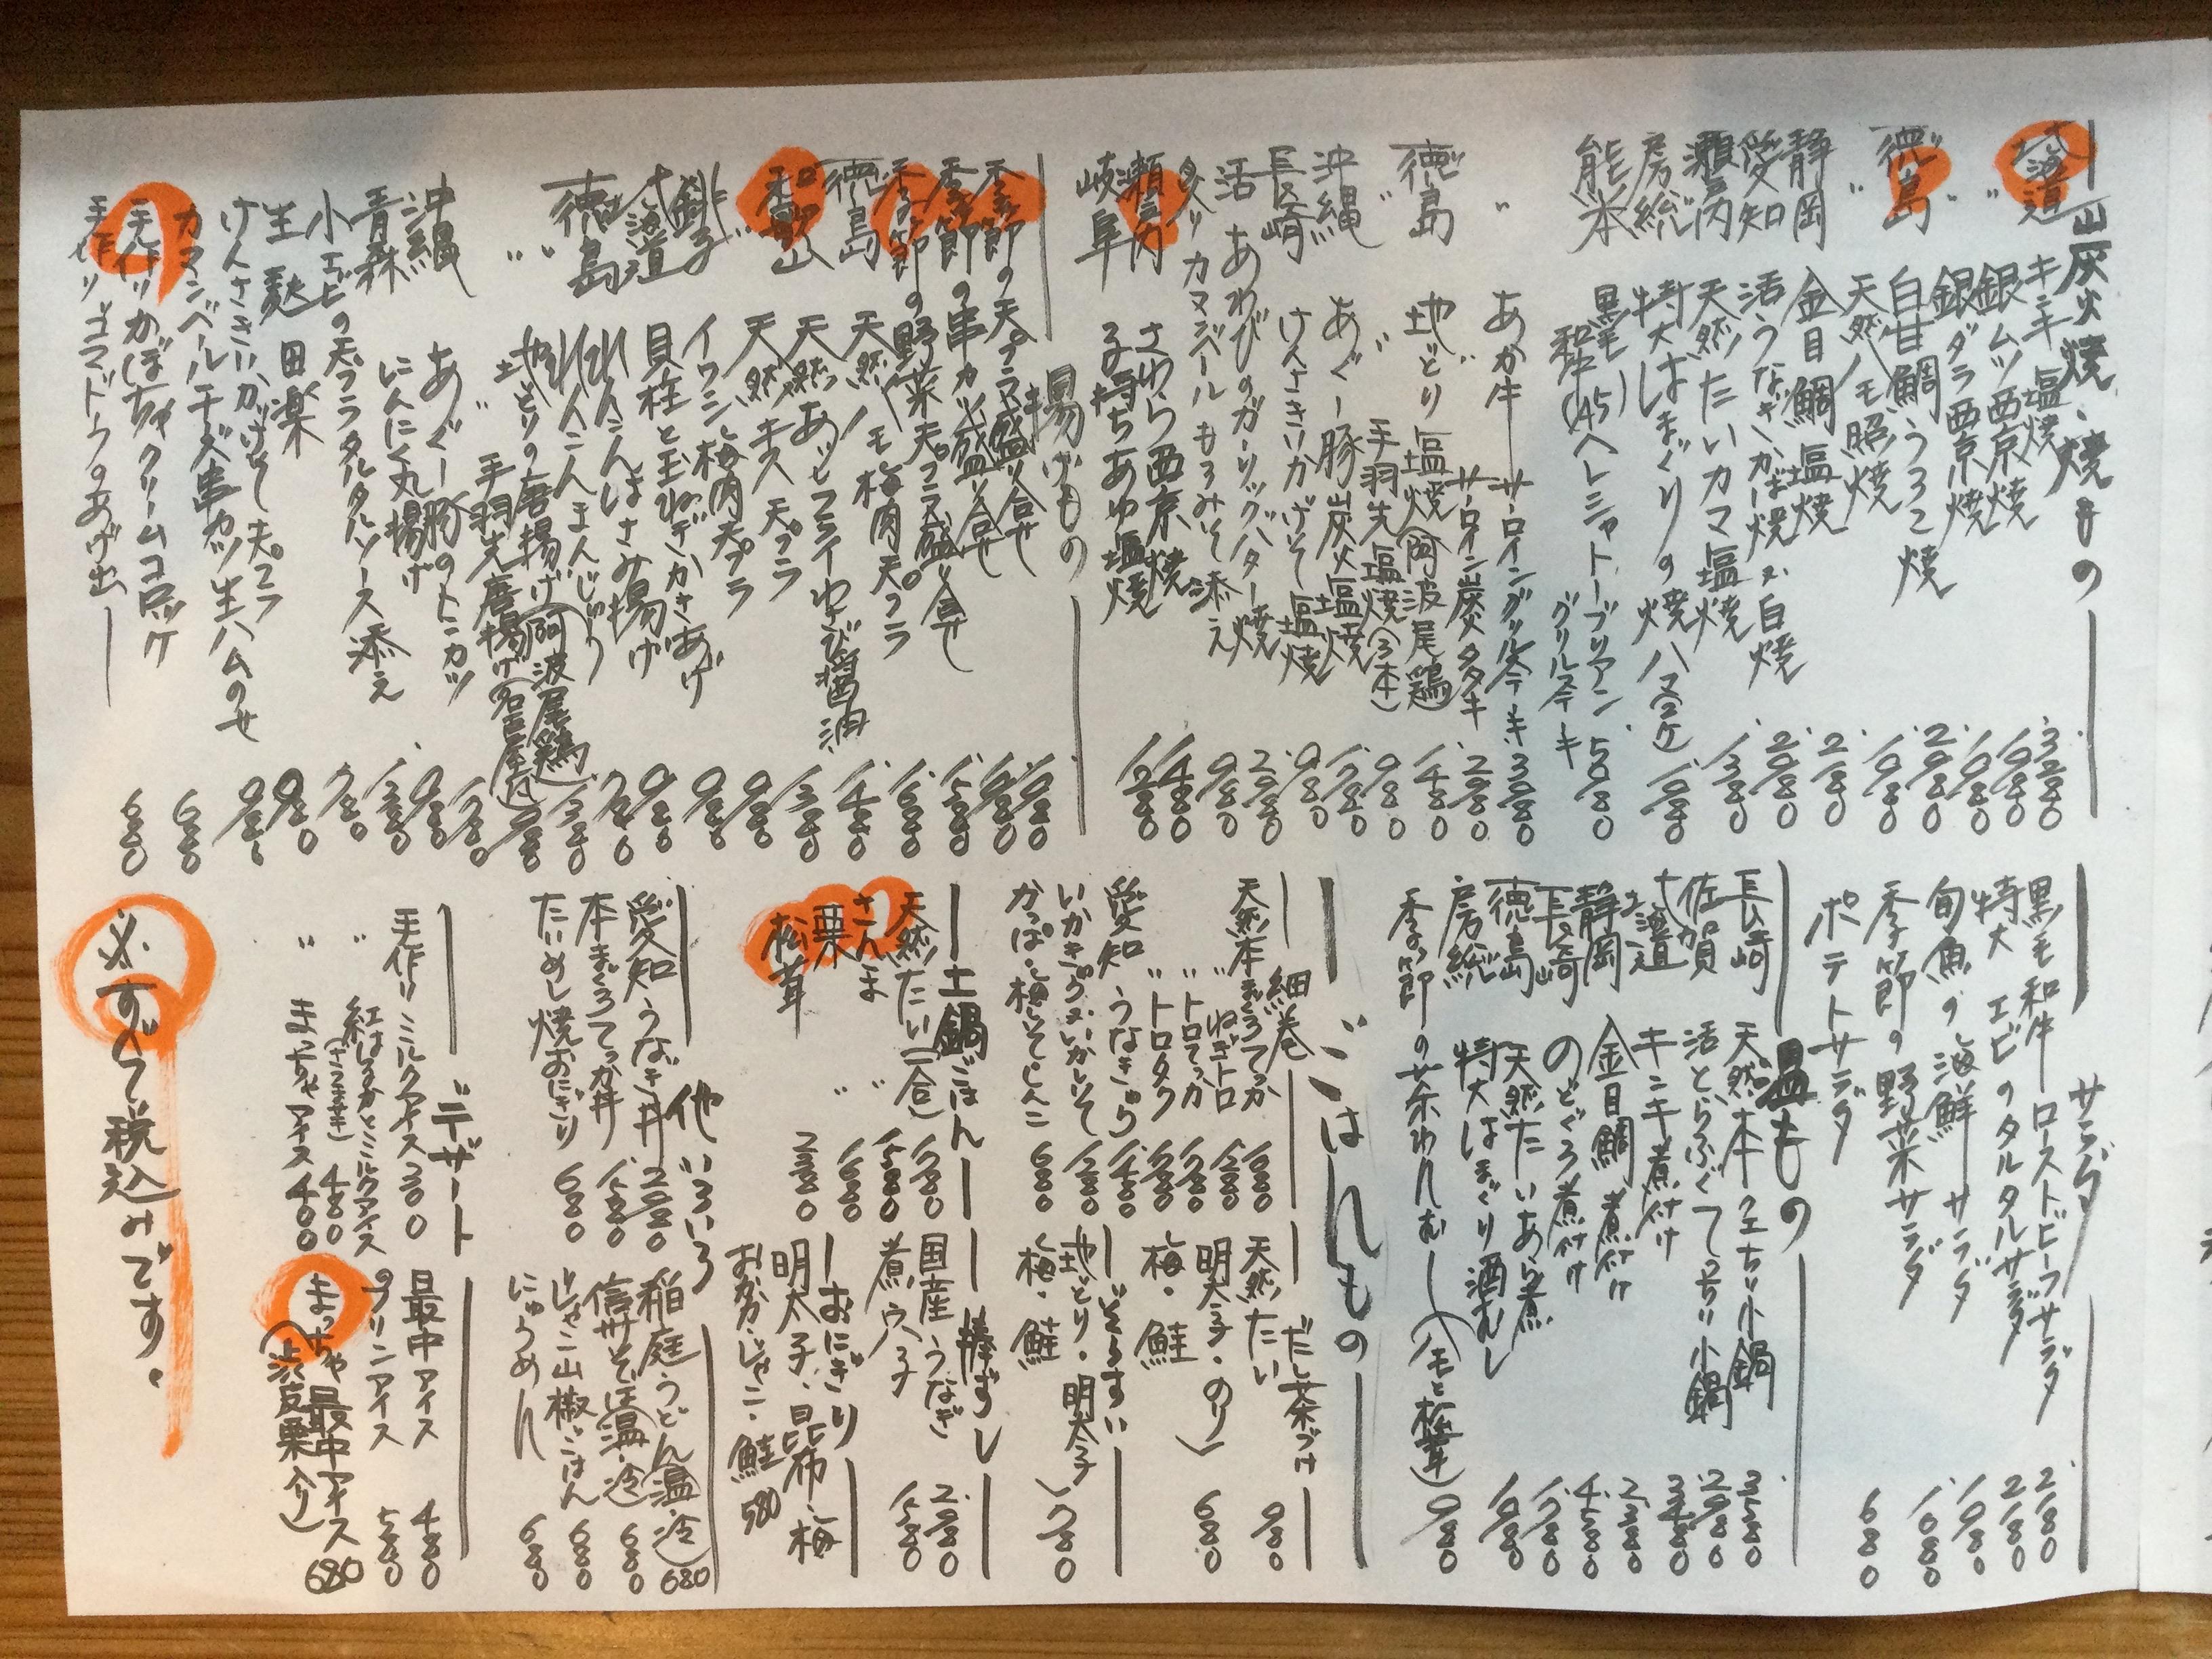 炭火焼、焼もの
北海道 キンキ 塩焼 3,280
〃 銀ムツ西京焼 1,980
銀ダラ西京焼 1,980
徳島 白甘鯛うろこ焼 2,980
〃 天然ハモ照焼 1,980
静岡 金目鯛塩焼 2,180
愛知 活うなぎかば焼 又 白焼 2,980
瀬戸内 天然たいカマ塩焼 1,380
房総 特大はまぐりの焼ハマ(2ケ) 1,080
熊本 黒毛和牛(A5)ヘレシャトーブリアン グリルステーキ 5,080
〃 あか牛 サーロイングリルステーキ 3,080
サーロイン炭タタキ 2,080
徳島 地どり塩焼(阿波尾鶏) 1,480
〃 〃 手羽先塩焼(3本) 980
沖縄 あぐー豚炭火塩焼 1,780
長崎 けんさきいかげそ塩焼 980
活あわびのガーリックバター焼 2,080
炙りカマンベールもろみそ添え 980
瀬戸内 さわら西京焼 1,480
岐阜 子持ちあゆ塩焼 1,280
揚げもの
季節の天プラ盛り合せ 1,980
季節の串カツ盛り合せ 1,980
季節の野菜天プラ盛り合せ 1,580
徳島 天然ハモ梅肉天プラ 1,680
和歌山 天然あじフライわさび醤油 1,480
〃 天然キス天プラ 1,380
銚子 イワシ梅肉天プラ 980
北海道 貝柱と玉ねぎかきあげ 980
徳島 れんこんはさみ揚げ 980
〃 れんこんまんじゅう 780
〃 地どりの唐揚げ(阿波尾鶏) 1,380
〃 手羽先唐揚げ(名古屋風) 1,080
沖縄 あぐー豚のトンカツ 1,780
青森 にんにく丸揚げ 980
小エビの天プラタルタルソース添え 1,380
生麩田楽 780
けんさきいかげそ天プラ 980
カマンベールチーズ串カツ生ハムのせ 980
手作りかぼちゃクリームコロッケ 680
手作りゴマドウフのあげ出し 680
サラダ
黒毛和牛ローストビーフサラダ 2,180
特大エビのタルタルサラダ 2,180
旬魚の海鮮サラダ 1,980
季節の野菜サラダ 1,680
ポテトサラダ 680
温もの
長崎 天然本クエちり小鍋 3,580
佐賀 活とらふぐてっちり小鍋 2,980
北海道 キンキ煮付け 3,480
静岡 金目鯛煮付け 2,380
長崎 のどぐろ煮付け 4,580
徳島 天然たいあら煮 1,780
房総 特大はまぐり酒むし 1,980
季節の茶わんむし(ハモと松茸) 980
ごはんもの
細巻
天然本まぐろてっか 1,680
〃 ねぎトロ 1,380
〃 トロてっか 1,780
〃 トロタク 1,780
愛知 うなきゅう 1,480
いかきゅう又いかしそ 1,280
かっぱ・梅しそ・しんこ 680
だし茶づけ
天然たい 980
明太子・のり
梅・鮭 680
ぞうすい
地どり・明太子
梅・鮭 780
土鍋ごはん
天然たい(一合) 1,780
さんま 〃 1,580
栗 〃 1,680
松茸 2,380
棒ずし
国産うなぎ 2,980
煮穴子 1,580
おにぎり
明太子・昆布・梅
おかか・じゃこ・鮭 580
他いろいろ
愛知 うなぎ丼 2,980
本まぐろてっか丼 1,580
たいめし焼おにぎり 680
稲庭うどん(温・冷) 680
信州そば(温・冷) 680
じゃこ山椒ごはん 680
にゅうめん 680
デザート
手作りミルクアイス 300
〃 紅はるかとミルクアイス(さつまいも) 480
〃 まっちゃアイス 400
最中アイス 480
プリンアイス 580
まっちゃ最中アイス(渋皮栗入り) 680
必ずすべて税込みです。